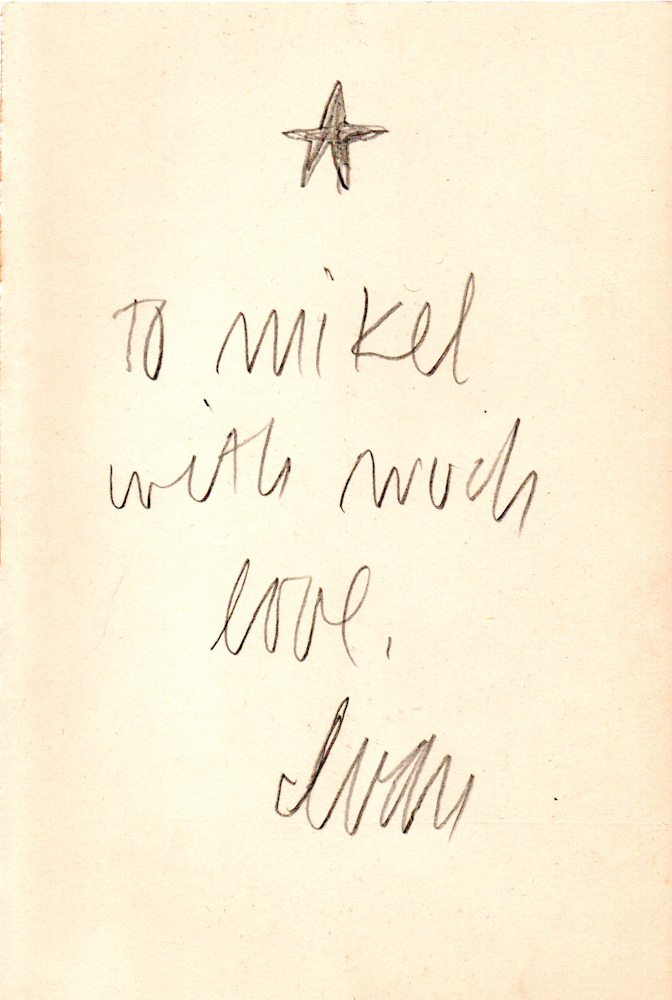 To mikel
with much
love,
Ivan